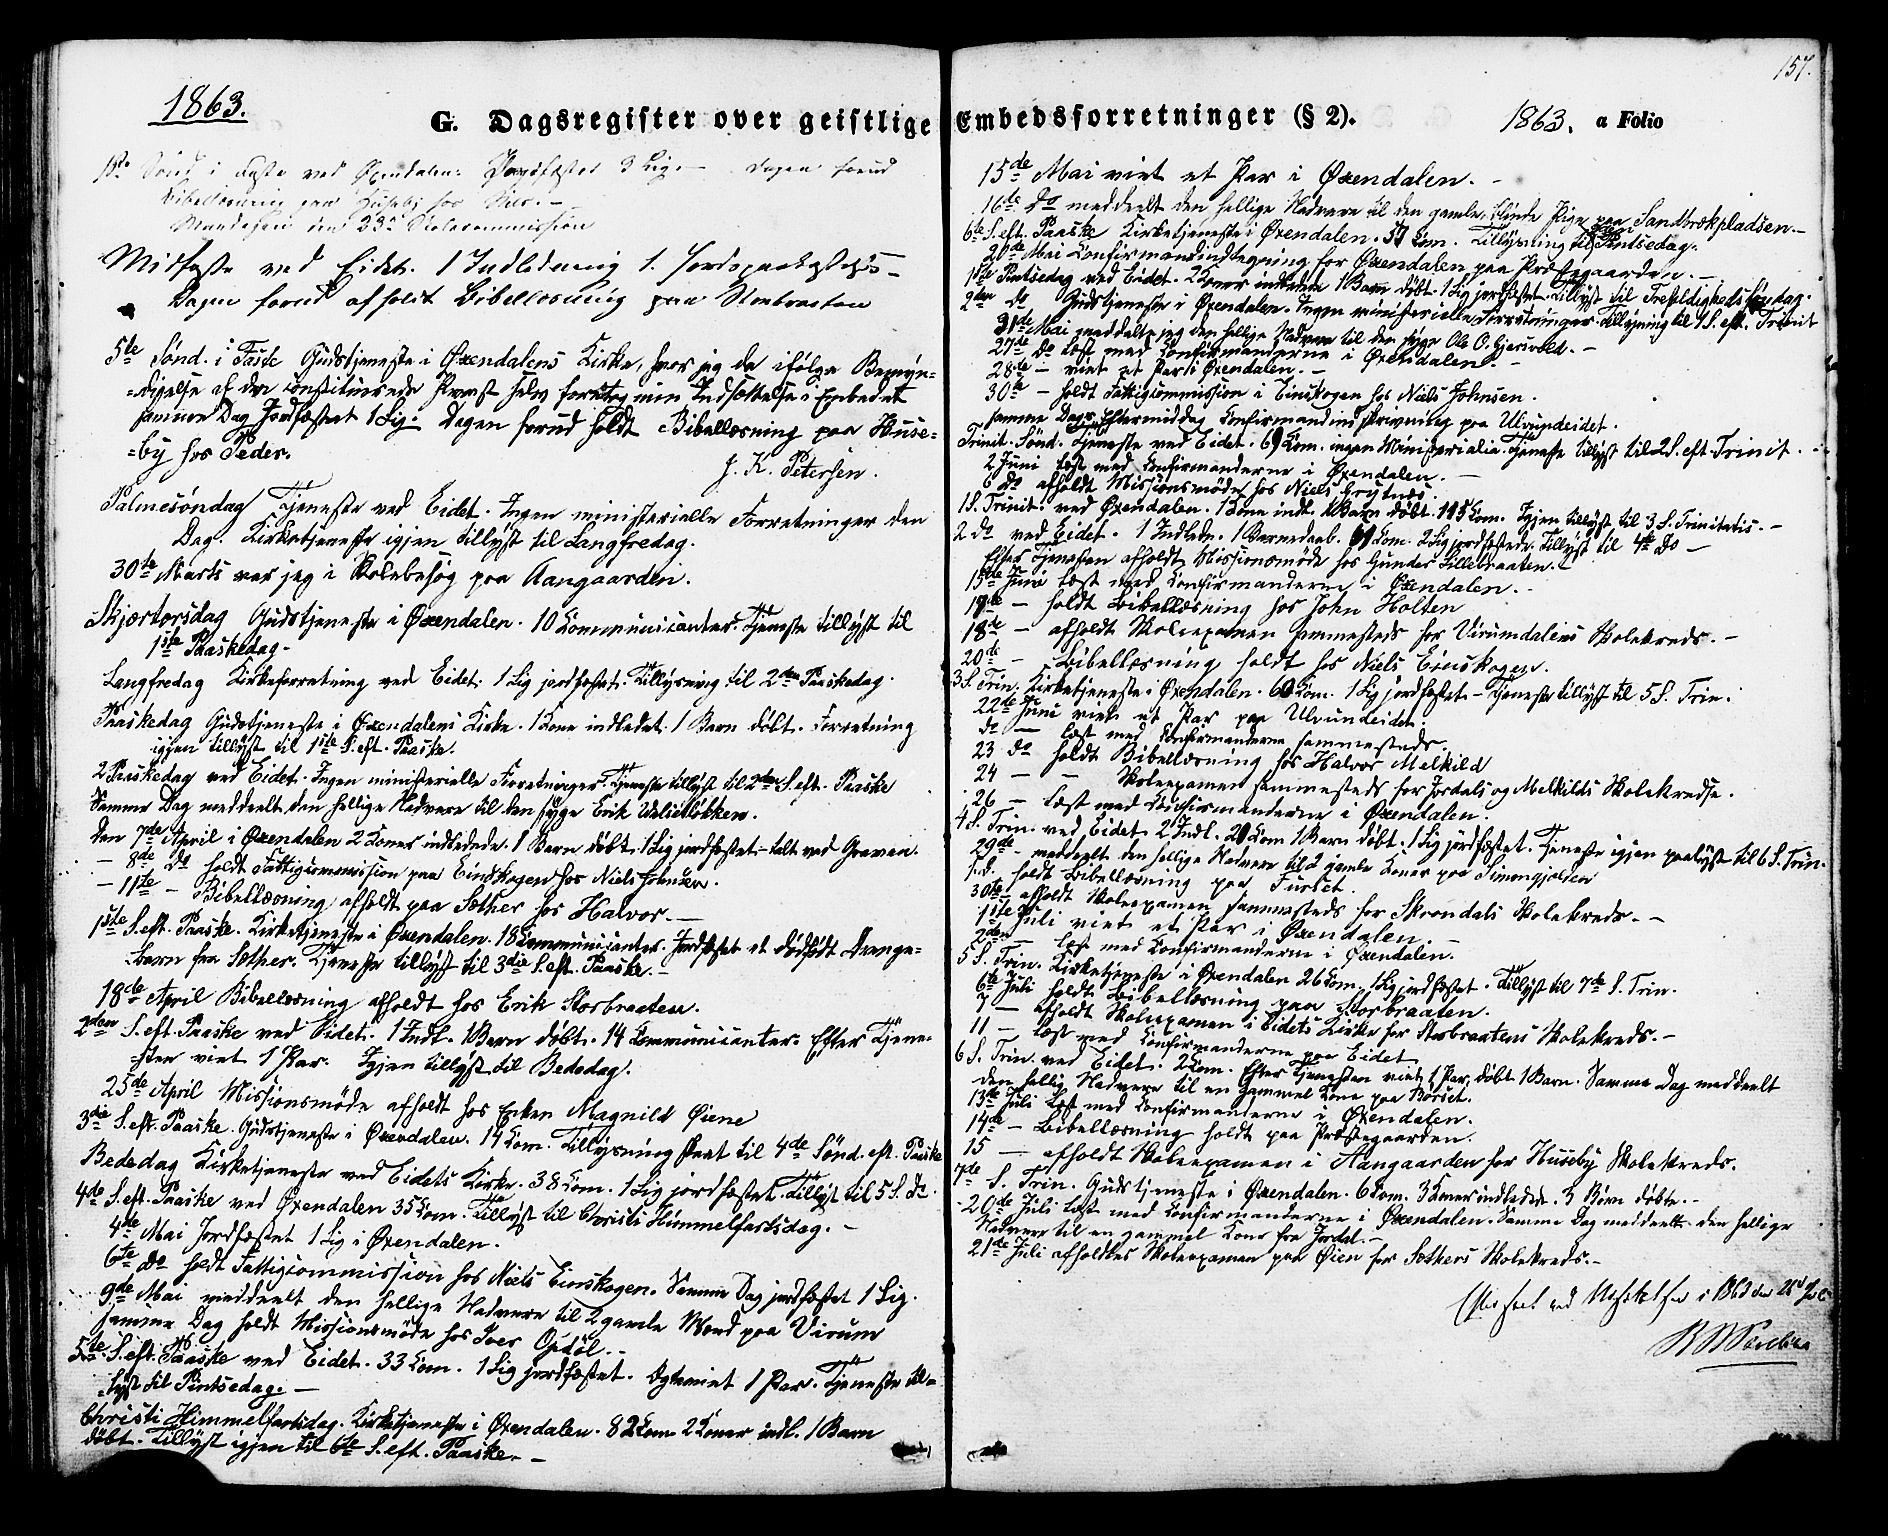 1863.
G. Dagsregister over geistlige
1ste Sønd. i Faste ved Øxendalen. Jordfæstet 3 Lig. — Dagen forud
Bibellæsning paa Huseby hos Nils. —
Mandagen den 23de Skolecommission
Midfaste ved Eidet. 1 Indledning 1. Jordpaakastelse —
Dagen forud afholdt Bibellæsning paa
5te Sønd. i Faste Gudstjeneste i Øxendalens Kirke, hvor jeg da ifølge Bemyn-
-digelse af den constituerede Provst selv foretog min Indsættelse i Embedet
samme Dag Jordfæstet 1 Lig. Dagen forud holdt Bibellæsning paa Huse-
-by hos Peder.
J. K. Petersen.
Palmesøndag Tjeneste ved Eidet. Ingen ministerielle Forretninger den
Dag. Kirketjeneste igjen tillyst til Langfredag.
30te Marts var jeg i Skolebesøg paa Aangaarden.
Skjærtorsdag Gudstjeneste i Øxendalen. 10 Communicanter. Tjeneste tillyst til
1ste Paaskedag.
Langfredag Kirkeforretning ved Eidet. 1 Lig jordfæstet. Tillysning til 2den Paaskedag.
Paaskedag Gudstjeneste i Øxendalens Kirke. 1 Kone indledet. 1 Barn døbt. Forretning
igjen tillyst til 1ste S. eft. Paaske.
2 Paaskedag ved Eidet. Ingen ministerielle Forretninger. Tjeneste tillyst til 2den S. eft. Paaske
Samme Dag meddeelt den hellige Nadvere til den syge Erik
Den 7de April i Øxendalen 2 Koner indledede. 1 Barn døbt. 1 Lig jordfæstet — talt ved Graven.
— 8de Do holdt Fattigcommission paa Einskogen hos Niels Johnsen.
— 11te — Bibellæsning afholdt paa Sæther hos Halvor. —
1ste S. eft. Paaske. Kirketjeneste i Øxendalen. 18 Communicanter. Jordfæstet et dødfødt Drenge-
-barn fra Sæther. Tjeneste tillyst til 3die S. eft. Paaske. —
18de April Bibellæsning afholdt hos Erik Storbraaten.
2den S. eft. Paaske ved Eidet. 1 Indl. 1 Barn døbt. 14 Communicanter. Efter Tjene-
-sten viet 1 Par. Igjen tillyst til Bededag.
25de April Missionsmøde afholdt hos Enken Magnild Øiene
3die S. eft. Paaske. Gudstjeneste i Øxendalen. 14 Com. Tillysning skeet til 4de Sønd. eft. Paaske
Bededag Kirketjeneste ved Eidets Kirke. 38 Com. 1 Lig jordfæstet. Tillyst til 5 S. Do.
4de S. eft. Paaske ved Øxendalen 35 Com. Tillyst til Christi Himmelfartsdag. —
4de Mai Jordfæstet 1 Lig i Øxendalen.
6te Do holdt Fattigcommission hos Niels Einskogen. Samme Dag jordfæstet 1 Lig.
9de Mai meddeelt den hellige Nadvere til 2 gamle Mænd paa Virum
samme Dag holdt Missionsmøde hos Iver Opdøl. —
5te S. eft. Paaske ved Eidet. 33 Com. 1 Lig jordfæstet. Ægteviet 1 Par. Tjeneste til-
-lyst til Pintsedag. —
Christi Himmelfartsdag. Kirketjeneste i Øxendalen. 82 Com. 2 Koner indl. 1 Barn
døbt. Tillyst igjen til 6te S. eft. Paaske. —
157.
Embedsforretninger (§ 2). 1863. a Folio
15de Mai viet et Par i Øxendalen. —
16de Do meddeelt den hellige Nadvere til den gamle, blinde Pige paa Sandbrækpladsen. —
6te S. eft. Paaske Kirketjeneste i Øxendalen. 57 Com. Tillysning til 2den Pintsedag.
20de Mai Confirmandindtegning for Øxendalen paa Præstegaarden. —
1ste Pintsedag ved Eidet. 2 Koner indledede 1 Barn døbt. 1 Lig jordfæstet. Tillyst til Trefoldigheds Søndag.
2den do Gudstjeneste i Øxendalen. Ingen ministerielle Forretninger. Tillysning til 1 S. eft. Trinit
21de Mai meddelte jeg den hellige Nadvere til den syge Ole O. Gjersvold. —
27de Do læst med Confirmanderne i Øxendalen. —
28de — viet et Par i Øxendalen. —
30te — holdt Fattigcommission i Einskogen hos Niels Johnsen.
samme Dags Eftermiddag Confirmandindskrivning paa Ulvundeidet.
Trinit. Sønd. Tjeneste ved Eidet. 69 Com. ingen Ministerialia. Tjeneste tillyst til 2 S. eft. Trinit.
2 Juni læst med Confirmanderne i Øxendalen. —
6 Do afholdt Missionsmøde hos Niels Grytnes.
1 S. Trinit. ved Øxendalen. 1 Kone indl. 1 Barn døbt. 115 Com. Igjen tillyst til 3 S. Trinitatis. —
2 do ved Eidet. 1 Indledn. 1 Barnedaab. 69 Com. 2 Lig jordfæstede. Tillyst til 4de Do —
Efter Tjenesten afholdt Missionsmøde hos Gunder Lillebraaten.
15de Juni læst med Confirmanderne i Øxendalen. —
17de — holdt Bibellæsning hos John Holten
18de — afholdt Skoleexamen sammesteds for Virumdalens Skolekreds. —
20de — Bibellæsning holdt hos Niels Einskogen.
3 S. Trin. Kirketjeneste i Øxendalen. 60 Com. 1 Lig jordfæstet — Tjeneste tillyst til 5 S. Trin.
22de Juni viet et Par paa Ulvundeidet.
do — læst med Confirmanderne sammesteds.
23 do holdt Bibellæsning hos Halvor Melkild
24 — — Skoleexamen sammesteds for Jordals og Melkilds Skolekredse.
26 — læst med Confirmanderne i Øxendalen.
4 S. Trin. ved Eidet. 2 Indl. 20 Com 1 Barn døbt. 1 Lig jordfæstet. Tjeneste igjen paalyst til 6 S. Trin.
29de — meddeelt den hellige Nadvere til 2 gamle Koner paa Simengjølden
s.d. holdt Bibellæsning paa Furset.
30te — afholdt Skoleexamen sammesteds for Skrondals Skolekreds. —
1ste Juli viet et Par i Øxendalen. —
2den — læst med Confirmanderne i Øxendalen.
5 S. Trin. Kirketjeneste i Øxendalen 26 Com. 1 Lig jordfæstet. Tillyst til 7de S. Trin.
6te Juli holdt Bibellæsning paa Storbraaten.
7 — afholdt Skoleexamen i Eidets Kirke for Storbraatens Skolekreds. —
11 — læst med Confirmanderne paa Eidet
6 S. Trin. ved Eidet. 2 Com. Efter Tjenesten viet 1 Par, døbt 1 Barn. Samme Dag meddeelt
den hellig Nadvere til en gammel Kone paa Børset.
13de Juli læst med Confirmanderne i Øxendalen.
14de — Bibellæsning holdt paa Præstegaarden.
15 — afholdt Skoleexamen i Aangaarden for Huseby Skolekreds.
7de S. Trin. Gudstjeneste i Øxendalen. 6 Com. 3 Koner indledede. 3 Børn døbte. —
20de Juli læst med Confirmanderne i Øxendalen. Samme Dag meddeelt den hellige
Nadvere til en gammel Kone fra Jordal. —
21de Juli afholdtes Skoleexamen paa Øien for Sæthers Skolekreds. —
Efterseet ved Visitatsen i 1863 den